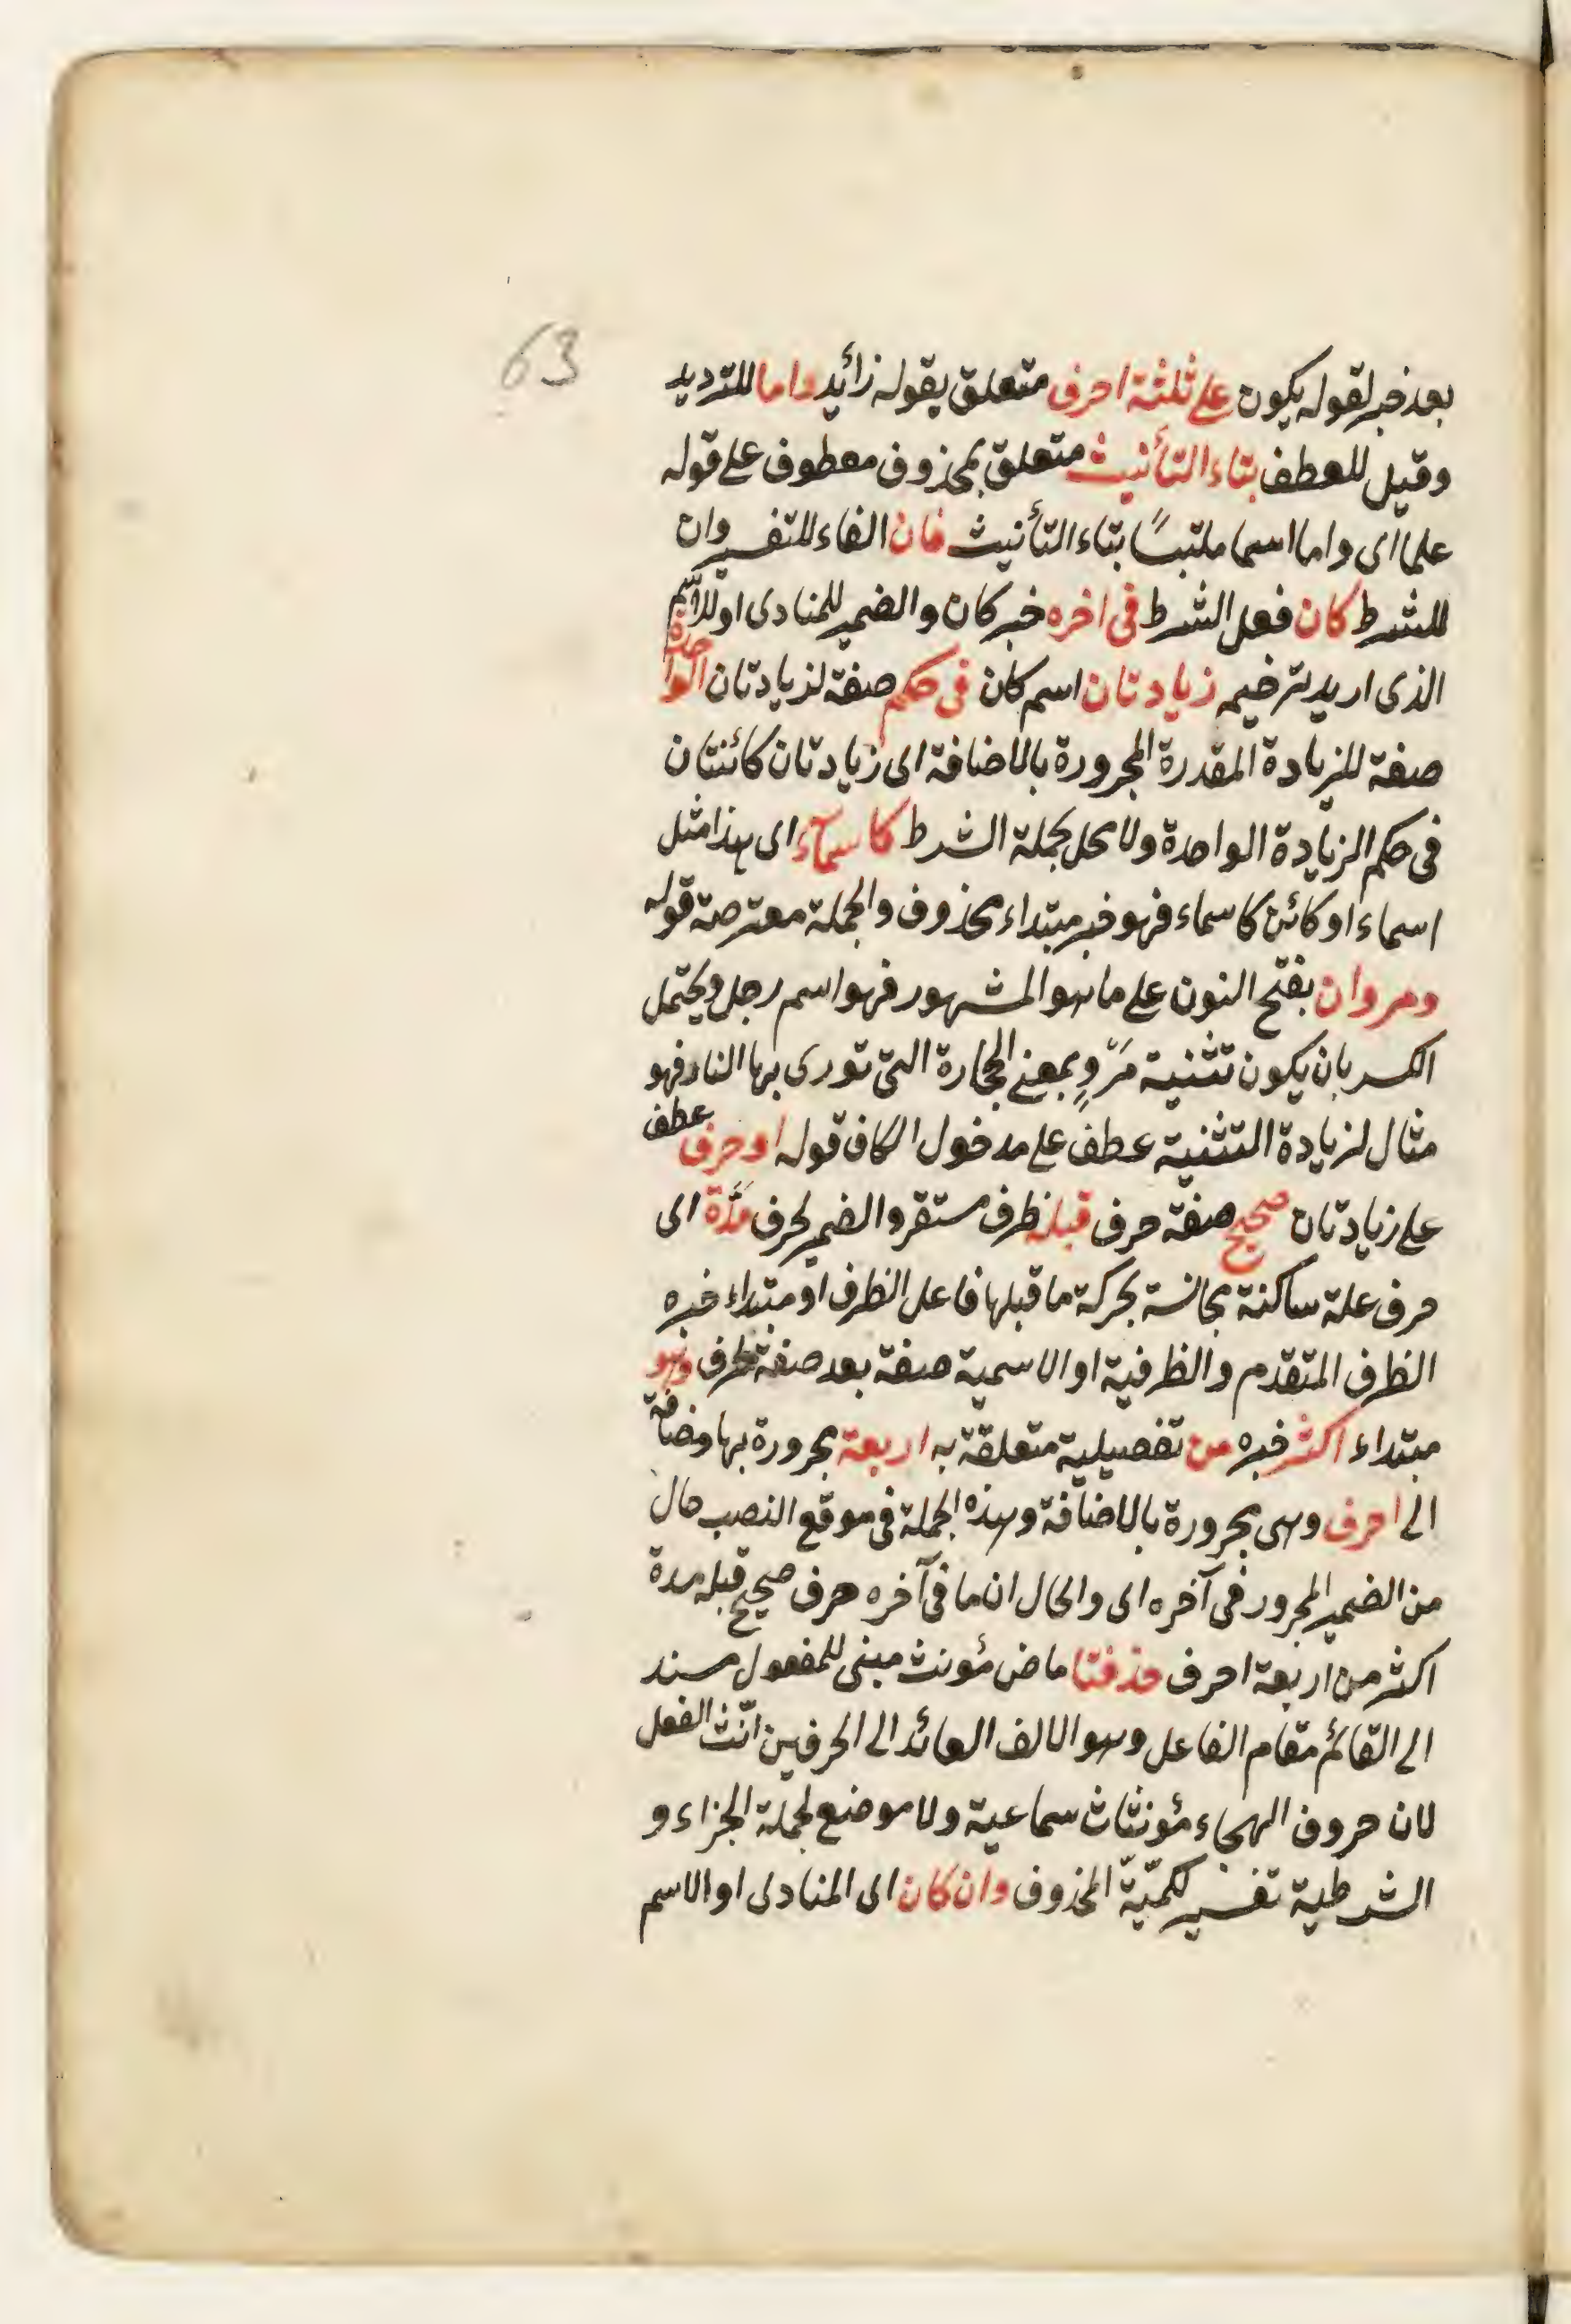 63
بعد خبر لقوله يكون على ثلثة احرف متعلق بقوله زائد واما للترديد
وقيل للعطف بتاء التأنيث متعلق بمحذوف معطوف على قوله
علما اى واما اسما ملتبسًا بتاء التأنيث فان الفاء للتفسير وان
للشرط كان فعل الشرط فى اخره خبر كان والضمير للمنادى او للاسم
الذى اريد ترخيمه زيادتان اسم كان فى حكم صفة لزيادتان الواحدة
صفة للزيادة المقدرة المجرورة بالاضافة اى زيادتان كائنتان
فى حكم الزيادة الواحدة ولا محل لجملة الشرط كاسمآء اى هذا مثل
اسماء او كائن كاسماء فهو خبر مبتداء محذوف والجملة معترضة قوله
ومروان بفتح النون على ما هو المشهور فهو اسم رجل ويحتمل
الكسر بان يكون تثنية مَرْوٍ بمعنى الحجارة التى تورى بها النار فهو
مثال لزيادة التثنية عطف على مدخول الكاف قوله او حرف عطف
على زيادتان صحيح صفة حرف قبله ظرف مستقر والضمير لحرف مَدَّة اى
حرف علة ساكنة مجانسة بحركة ما قبلها فاعل الظرف او مبتداء خبره
الظرف المتقدم والظرفية او الاسمية صفة بعد صفة ظرف وهو
مبتداء اكثر خبره من تفصيلية متعلقة به اربعة مجرورة بها مضافة
الى احرف وهى مجرورة بالاضافة وهذه الجملة فى موقع النصب حال
من الضمير المجرور فى آخره اى والحال ان ما فى آخره حرف صحيح قبله مدة
اكثر من اربعة احرف حذفتا ماض مؤنث مبنى للمفعول مسند
الى القائم مقام الفاعل وهو الالف العائد الى الحرفين انّث الفعل
لان حروف الهجاء مؤنثات سماعية ولا موضع لجملة الجزاء و
الشرطية تفسير لكميّة المحذوف وان كان اى المنادى او الاسم